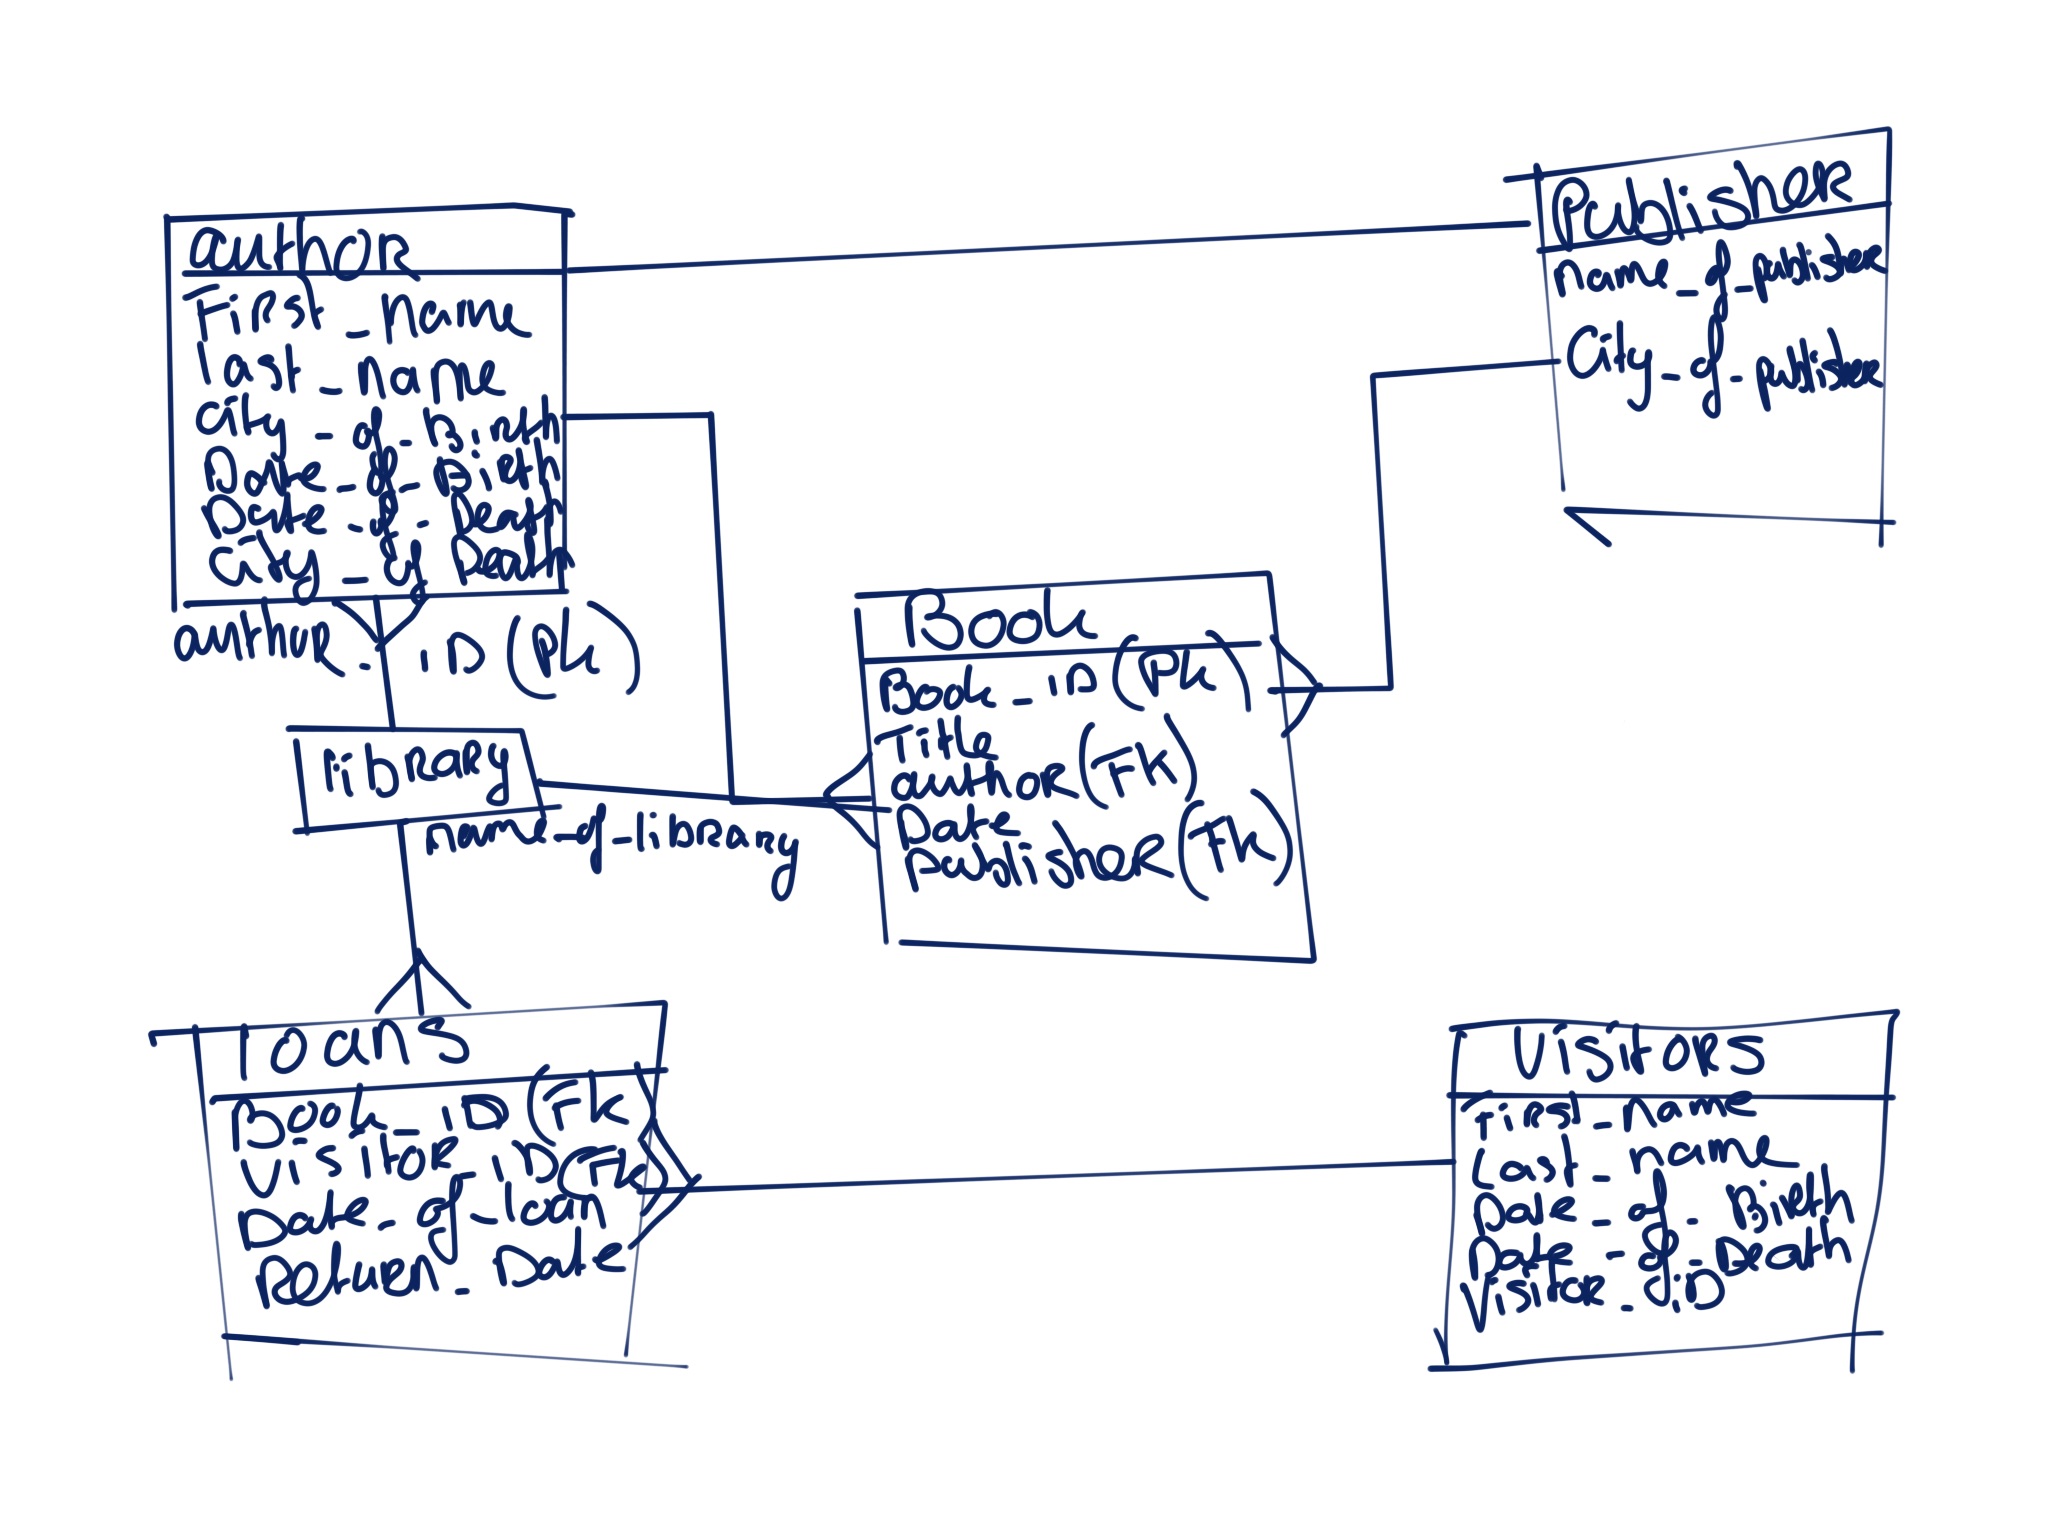 author
First_name
last_name
City_of_Birth
Date_of_Birth
Date_of_Death
City_of Death
author_ID (Pk)
Publisher
name_of_publisher
City_of_publisher
library
name_of_library
Book
Book_ID (Pk)
Title
author (Fk)
Date
publisher (Fk)
loans
Book_ID (Fk
Visitor_ID (Fk
Date_of_loan
Return_Date
Visitors
First_name
Last_name
Date_of_Birth
Date_of_Death
Visitor_ID